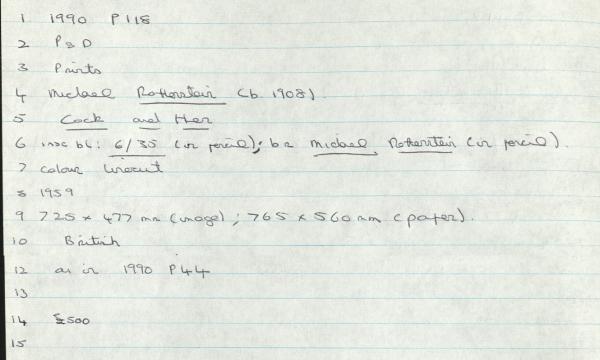 1 1990 P118
2 P&D
3 Prints
4 Michael Rothenstein (b 1908)
5 Cock and Hen
6 insc bl: 6/35 (in pencil); br Michael Rothenstein (in pencil).
7 colour linocut
8 1959
9 725 x 477 mm (image); 765 x 560 mm (paper).
10 British
12 as in 1990 P44
13
14 £500
15